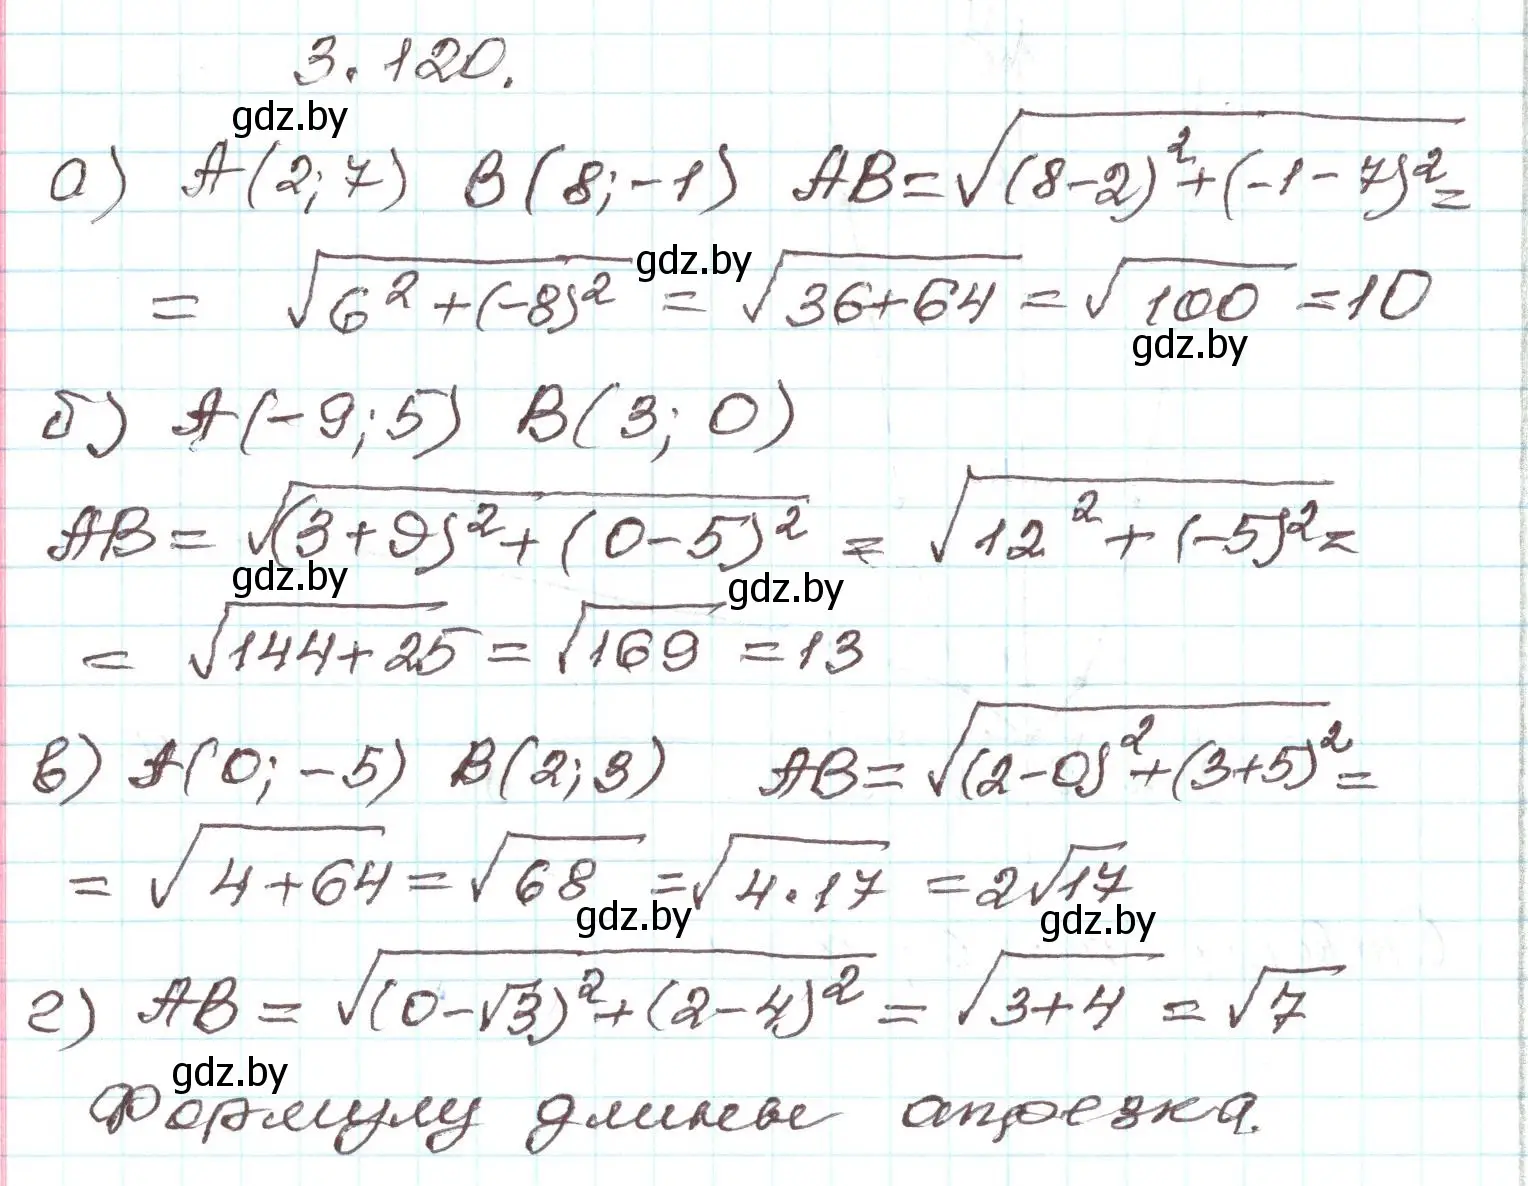 3.120.
gdz.by
а) A(2; 7) B(8; -1) AB = √((8-2)² + (-1-7)²) =
= √(6² + (-8)²) = √(36+64) = √100 = 10
gdz.by
gdz.by
б) A(-9; 5) B(3; 0)
AB = √((3+9)² + (0-5)²) = √(12² + (-5)²) =
gdz.by
gdz.by
= √(144+25) = √169 = 13
в) A(0; -5) B(2; 3) AB = √((2-0)² + (3+5)²) =
= √(4+64) = √68 = √(4·17) = 2√17
gdz.by
gdz.by
г) AB = √((0-√3)² + (2-4)²) = √(3+4) = √7
gdz.by
Формулу длины отрезка.